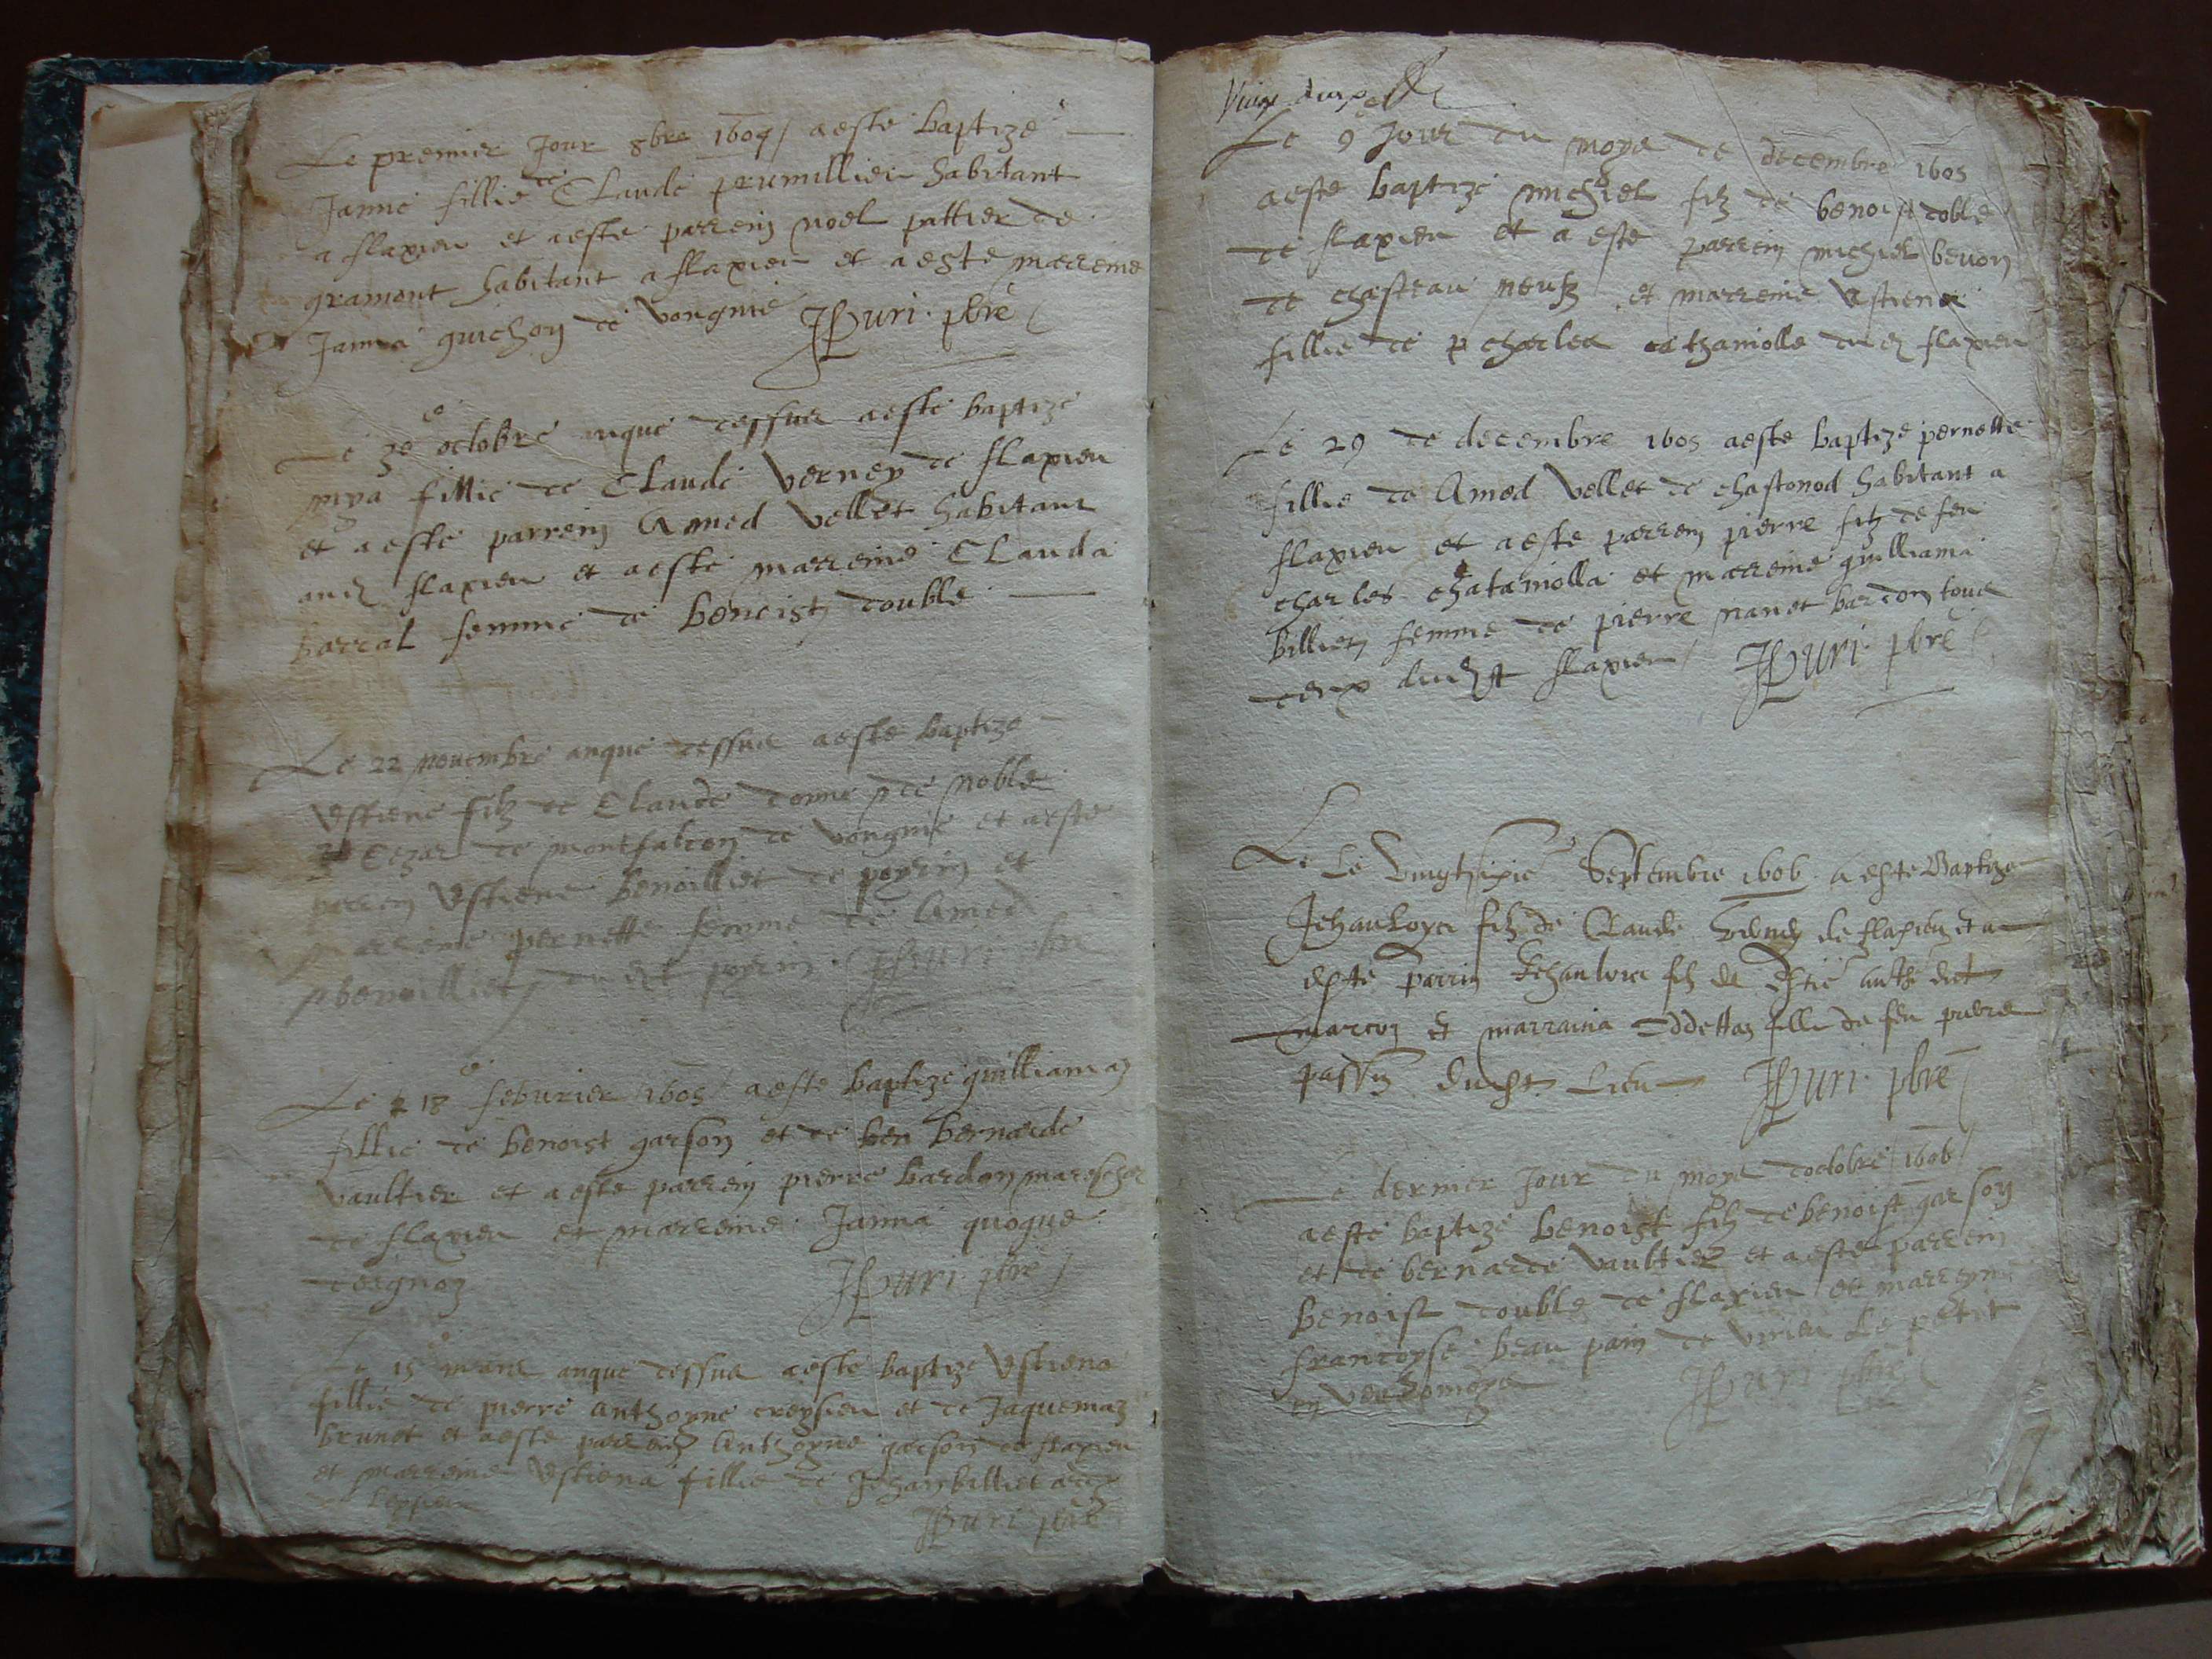 Le premier Jour 8bre 1604 / a este baptize
Janne fillie de Claude prumillieu habitant
a flaxieu et a este parrein noel pattier de
gramont habitant a flaxieu et a este marreine
Janna guichon de vongnie JPuri pbre
Le 30e octobre anque dessus a este baptize
mya fillie de Claude verney de flaxieu
et a este parrein Amed vellet habitant
aud flaxieu et a este marreine Clauda
barral femme de benoist double
Le 22 novembre anque dessus a este baptize
Estiene filz de Claude donne de noble
Cezar de montfalcon de vongnie et a este
parrein Estiene benoilliet de peyrin et
marreine pernette femme de Amed
benoilliet dudit peyrin JPuri pbre
Le 18e feburier 1605 / a este baptize guilliamaz
fillie de benoist garson et de bernarde
vaultier et a este parrein pierre bardon mareschal
de flaxieu et marreine Janna quogue
deignoz JPuri pbre
Le 15e mars anque dessus a este baptize Estiena
fillie de pierre anthoyne creyssieu et de Jaquemaz
brunet et a este parrein Anthoyne garson de flaxieu
et marreine Estiena fillie de Jehan billiet
JPuri pbre
Le 9e Jour du moys de decembre 1605
a este baptize michiel filz de benoist doble
de flaxieu et a este parrein michiel bevon
de chasteau neufz et marreine Estiena
fillie de charles chamolle dud flaxieu
Le 29 de decembre 1605 a este baptize pernette
fillie de Amed vellet de chastonod habitant a
flaxieu et a este parrein pierre filz de feu
charles chatamolla et marreine guilliama
billiet femme de pierre nanet bardon tous
deux dudit flaxieu / JPuri pbre
Le vingtsixie Septembre 1606 a este Baptize
Jehan Loys filz de Claude de flaxieu et a
este parrin Jehan loys filz de dict
marcoz et marraina Oddettaz fille de feu pierre
passin dudit Lieu JPuri pbre
Le dernier Jour du moys doctobre / 1606 /
a este baptize benoist filz de benoist garson
et de bernarde vaultier et a este parrein
benoist double de flaxieu et marreyne
francoyse beau pain de virieu Le petit
en veuromeys JPuri pbre